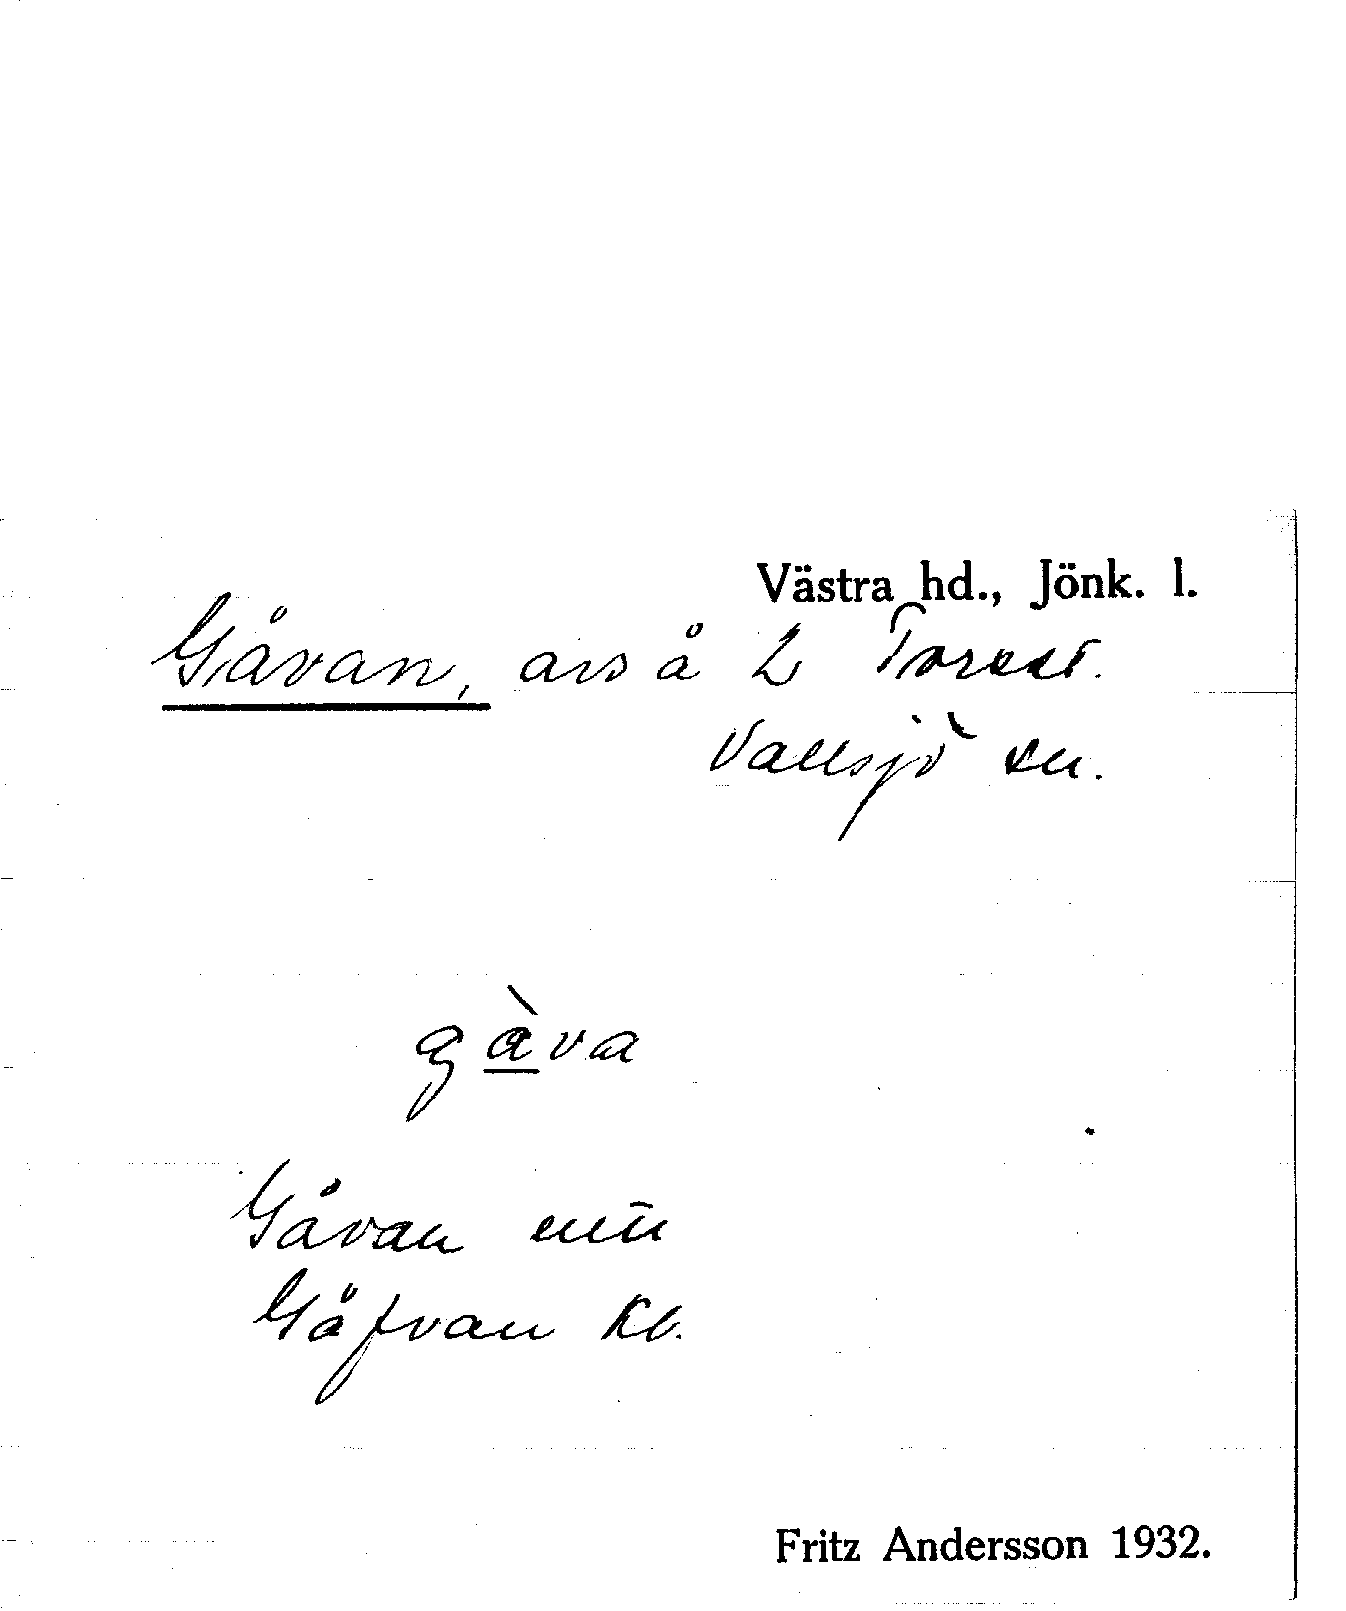 Västra hd., Jönk. l.
Gåvan, avs å 2 Torset.
Vallsjö sn.
gàva
Gåvan
Gåfvan Kb.
Fritz Andersson 1932.